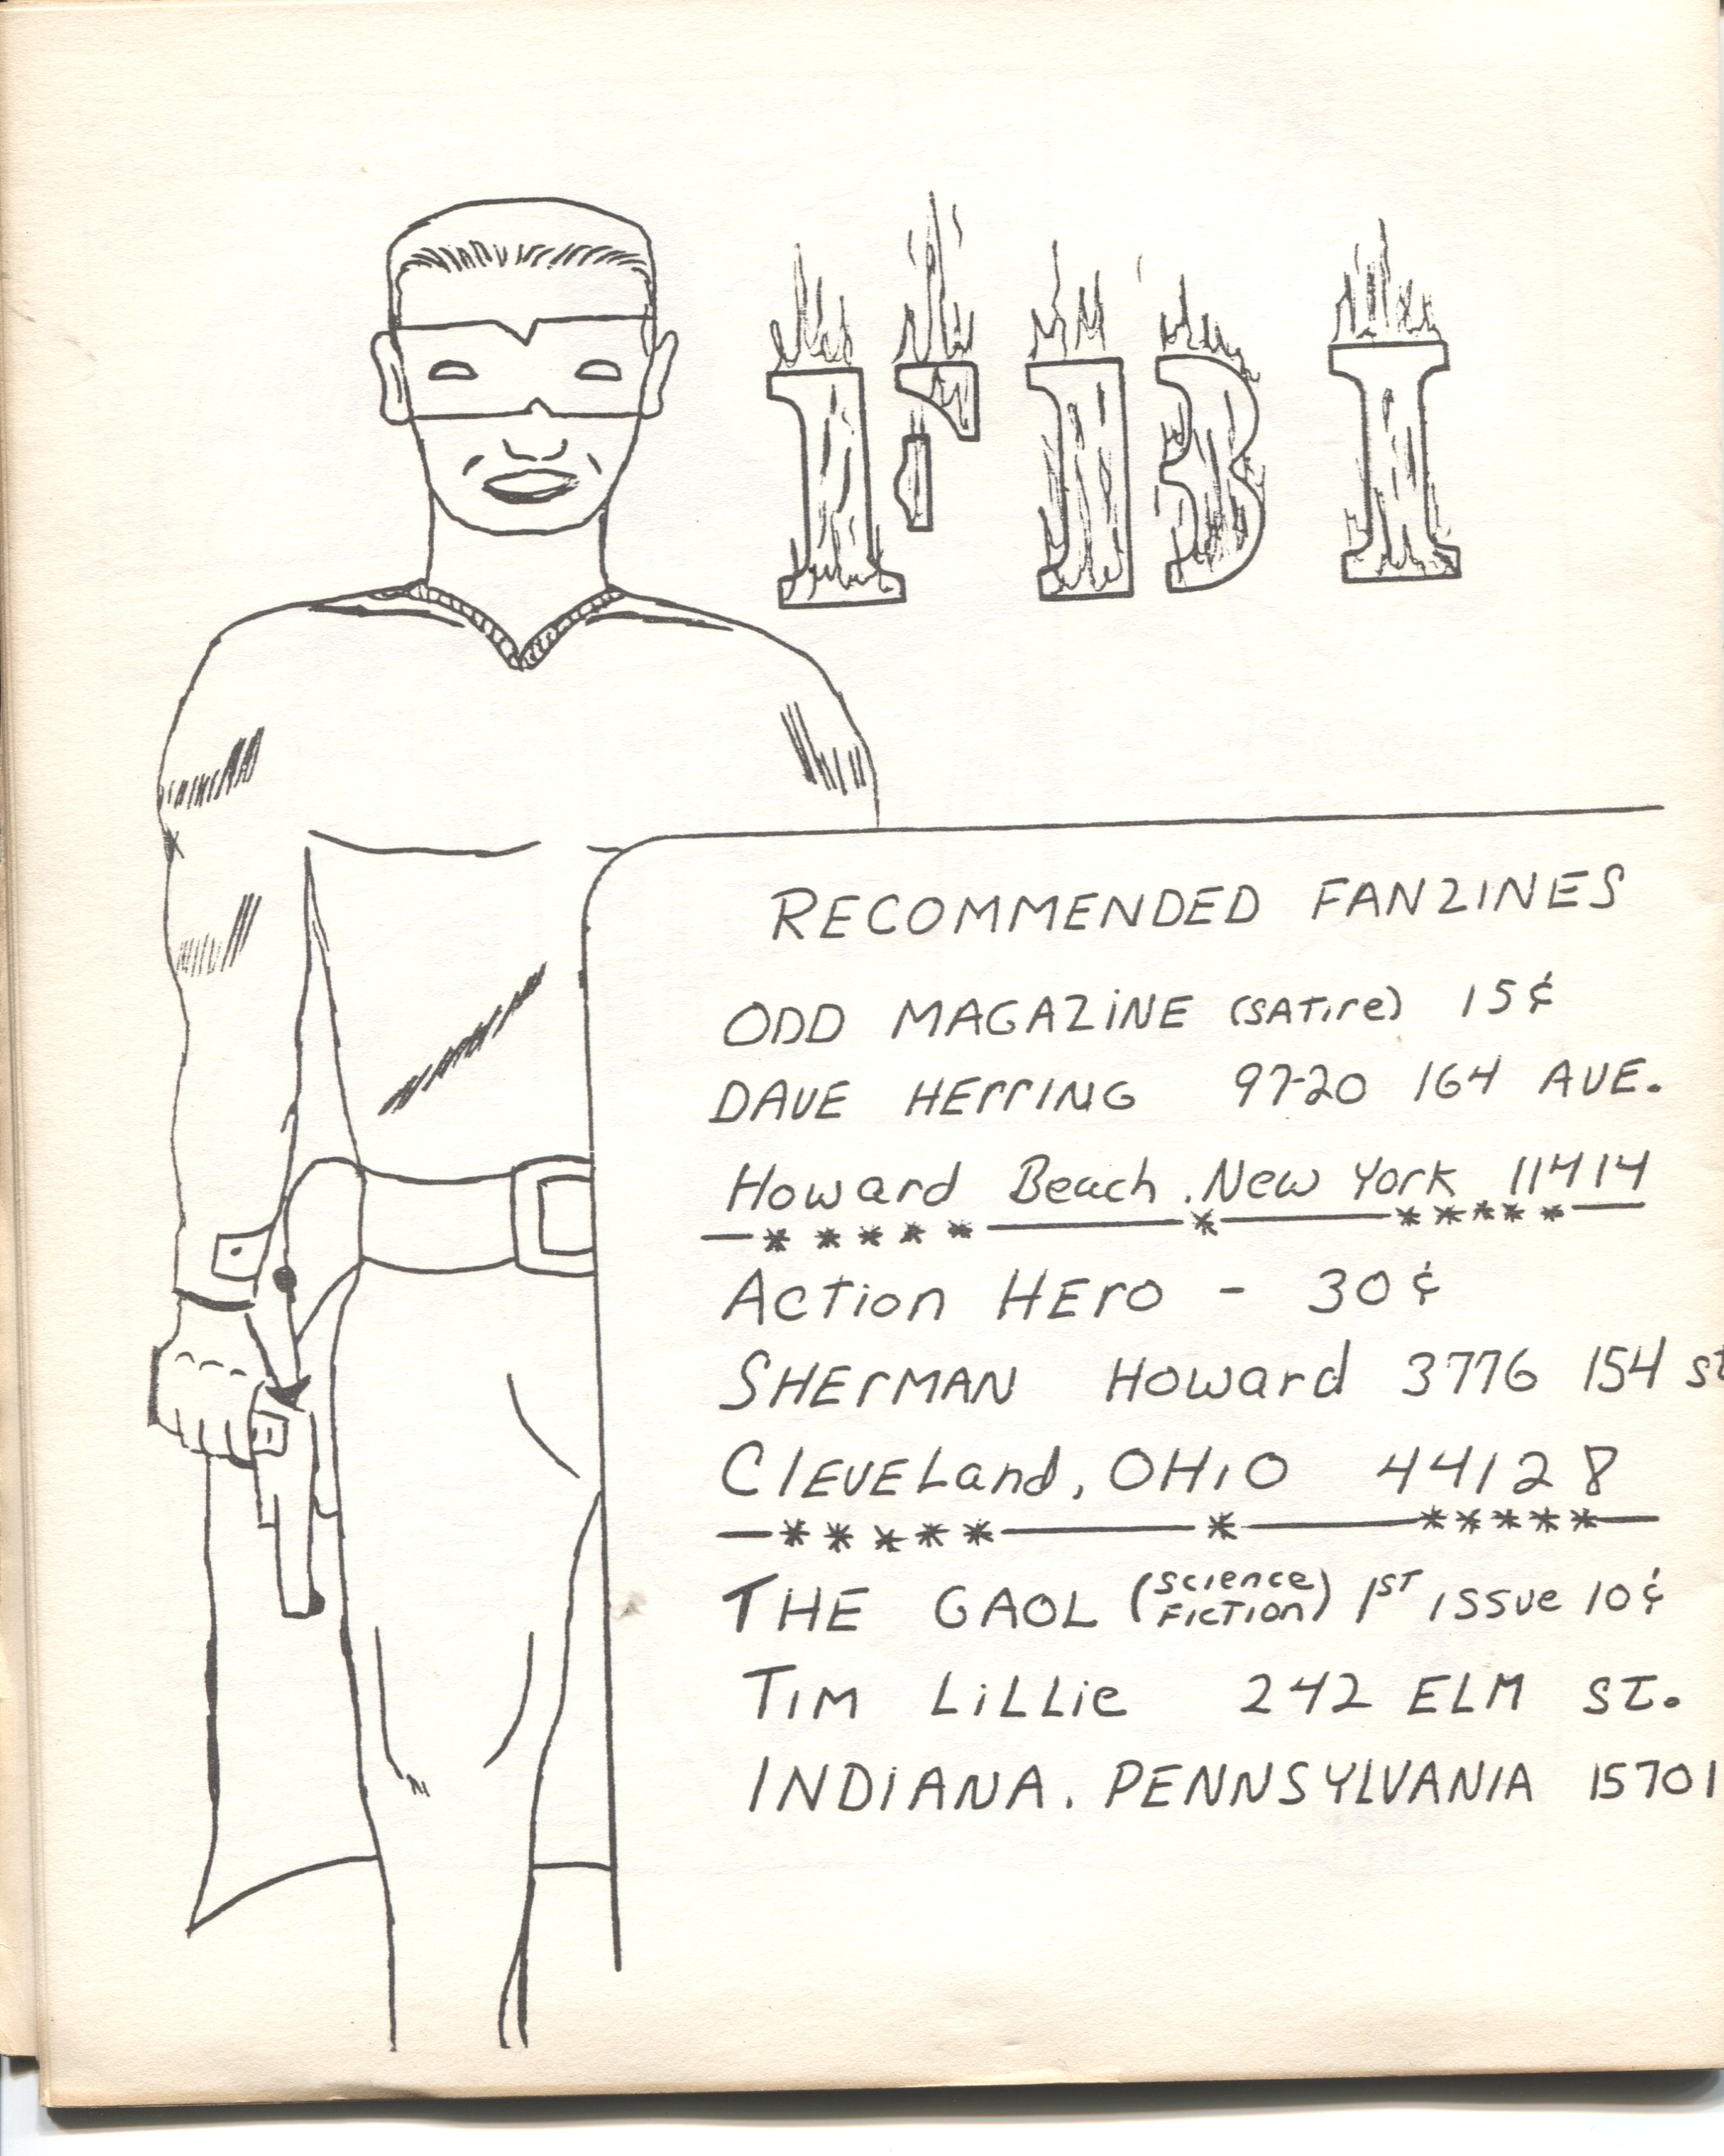 FBI
RECOMMENDED FANZINES
ODD MAGAZiNE (SATire) 15¢
DAVE HErrING 97-20 164 AVE.
Howard Beach. New York 11414
—* * * * *———*———* * * * *—
Action HEro - 30¢
SHErMAN Howard 3776 154 st
ClEVELand, OHiO 44128
—* * * * *———*———* * * * *—
THE GAOL (science FicTion) 1ST ISSUe 10¢
TiM LiLLie 242 ELM ST.
INDiANA. PENNSYLVANIA 15701